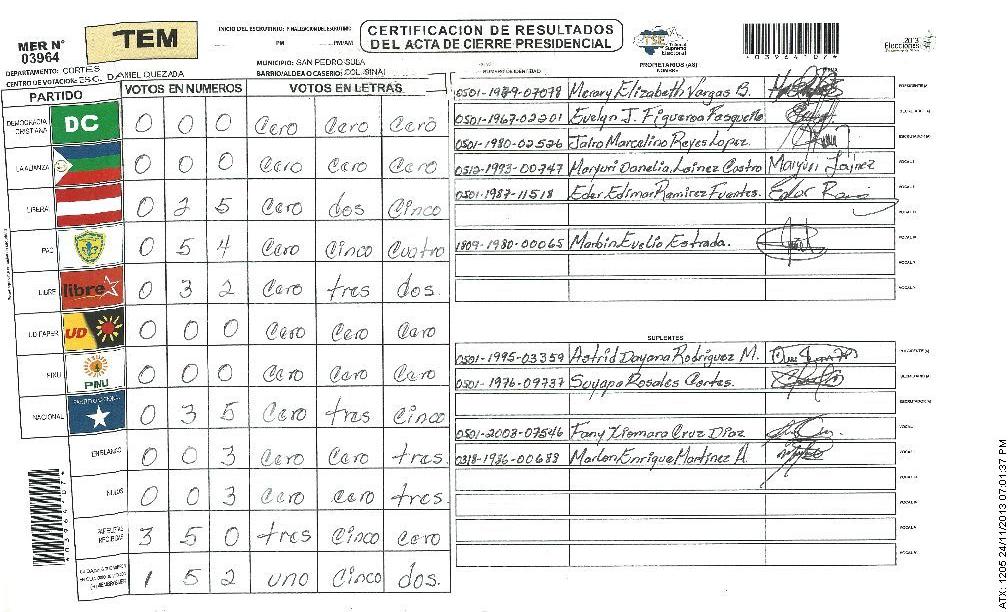 MER N° 03964
TEM
INICIO DEL ESCRUTINIO: FINALIZACION DEL ESCRUTINIO
PM PM/AM
CERTIFICACION DE RESULTADOS
DEL ACTA DE CIERRE PRESIDENCIAL
TSE Tribunal Supremo Electoral
*03964107*
2013 Elecciones
DEPARTAMENTO: CORTES
MUNICIPIO: SAN PEDRO SULA
CENTRO DE VOTACION: ESC. DANIEL QUEZADA
BARRIO/ALDEA O CASERIO: COL. SINAI
PARTIDO VOTOS EN NUMEROS VOTOS EN LETRAS
DEMOCRACIA CRISTIANA DC 0 0 0 Cero Cero Cero
LA ALIANZA 0 0 0 Cero Cero Cero
LIBERAL 0 2 5 Cero dos Cinco
PAC 0 5 4 Cero Cinco Cuatro
LIBRE libre 0 3 2 Cero tres dos.
UD FAPER UD 0 0 0 Cero Cero Cero
PINU PINU 0 0 0 Cero Cero Cero
NACIONAL 0 3 5 Cero tres Cinco
EN BLANCO 0 0 3 Cero Cero tres.
NULOS 0 0 3 Cero Cero tres
PAPELETAS RECIBIDAS 3 5 0 tres Cinco Cero
1 5 2 uno Cinco dos.
PROPIETARIOS (AS)
NUMERO DE IDENTIDAD NOMBRE
0501-1989-07078 Merary Elizabeth Vargas B. PRESIDENTE (A)
Evelyn J. Figueroa Pasquelle SECRETARIO (A)
0501-1980-02526 Jairo Marcelino Reyes Lopez. ESCRUTADOR (A)
0512-1993-00747 Maryuri Danelia Lainez Castro Maryuri Lainez VOCAL I
0501-1987-11518 Eder Edimar Ramirez Fuentes. VOCAL II
1809-1980-00065 Marbin Evelio Estrada.
SUPLENTES
0501-1995-03359 Astrid Dayana Rodriguez M. PRESIDENTE (A)
0501-1976-09737 Suyapa Rosales Cortes. SECRETARIO (A)
ESCRUTADOR (A)
0501-2003-07546 Fany Xiomara Cruz Diaz VOCAL I
0318-1986-00688 Marlon Enrique Martinez A.
ATX: 1205 24/11/2013 07:01:37 PM